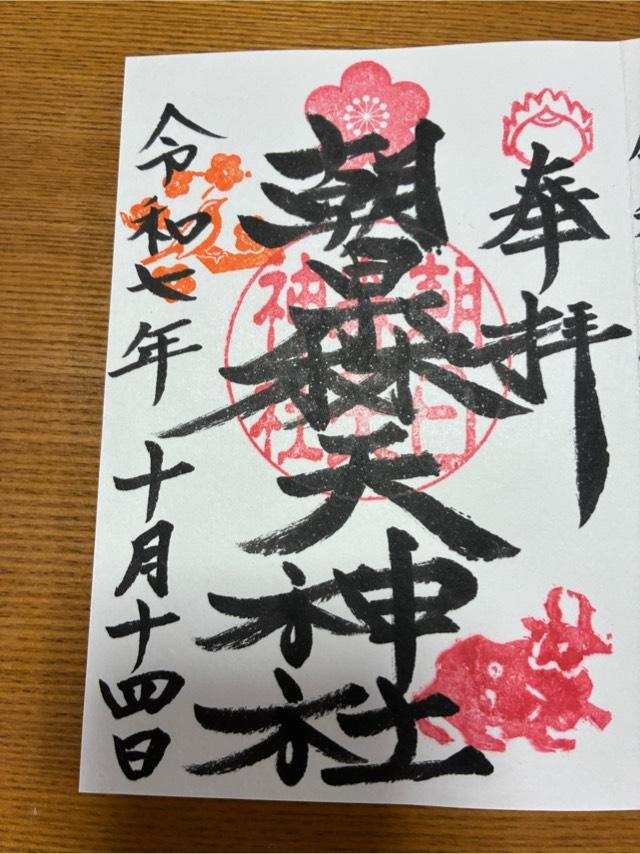 奉拝
朝日森天神社
朝日
森天
神社
令和七年十月十四日